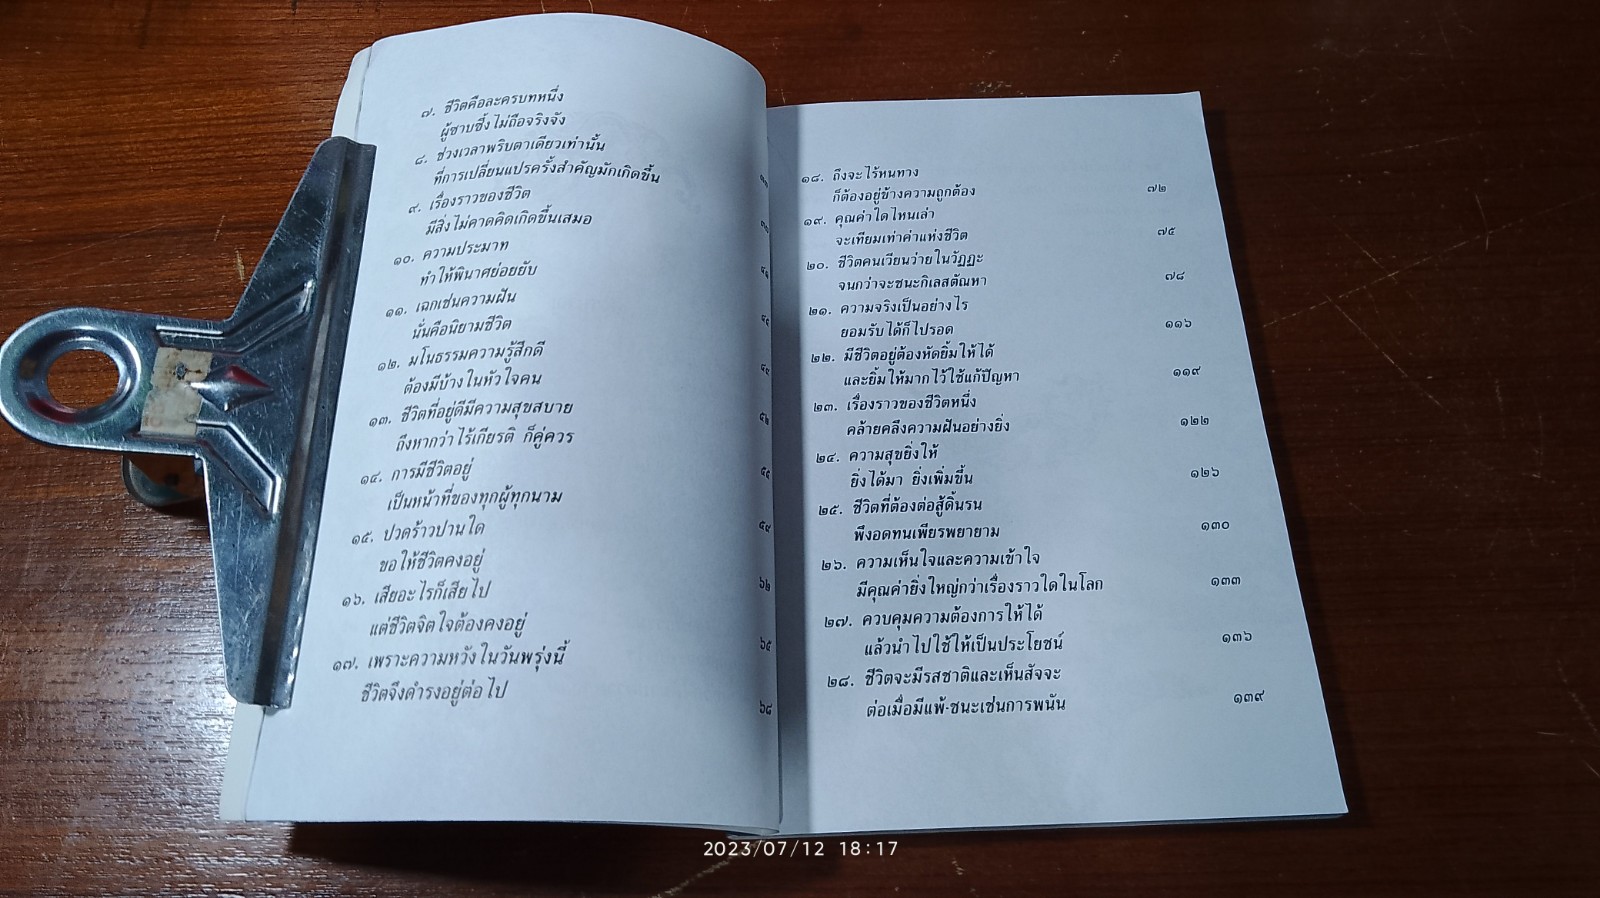 ๗. ชีวิตคือละครบทหนึ่ง
ผู้ซาบซึ้งไม่ถือจริงจัง
๘. ช่วงเวลาพริบตาเดียวเท่านั้น
ที่การเปลี่ยนแปรครั้งสำคัญมักเกิดขึ้น
๙. เรื่องราวของชีวิต
มีสิ่งไม่คาดคิดเกิดขึ้นเสมอ
๑๐. ความประมาท
ทำให้พินาศย่อยยับ
๑๑. เฉกเช่นความฝัน
นั่นคือนิยามชีวิต
๑๒. มโนธรรมความรู้สึกดี
ต้องมีบ้างในหัวใจคน
๑๓. ชีวิตที่อยู่ดีมีความสุขสบาย
ถึงหากว่าไร้เกียรติ ก็คู่ควร ๕๒
๑๔. การมีชีวิตอยู่
เป็นหน้าที่ของทุกผู้ทุกนาม ๕๕
๑๕. ปวดร้าวปานใด
ขอให้ชีวิตคงอยู่ ๕๙
๑๖. เสียอะไรก็เสียไป
แต่ชีวิตจิตใจต้องคงอยู่ ๖๕
๑๗. เพราะความหวังในวันพรุ่งนี้
ชีวิตจึงดำรงอยู่ต่อไป ๖๘
๑๘. ถึงจะไร้หนทาง
ก็ต้องอยู่ข้างความถูกต้อง ๗๒
๑๙. คุณค่าใดไหนเล่า
จะเทียมเท่าค่าแห่งชีวิต ๗๕
๒๐. ชีวิตคนเวียนว่ายในวัฏฏะ
จนกว่าจะชนะกิเลสตัณหา ๗๘
๒๑. ความจริงเป็นอย่างไร
ยอมรับได้ก็ไปรอด ๑๑๖
๒๒. มีชีวิตอยู่ต้องหัดยิ้มให้ได้
และยิ้มให้มากไว้ใช้แก้ปัญหา ๑๑๙
๒๓. เรื่องราวของชีวิตหนึ่ง
คล้ายคลึงความฝันอย่างยิ่ง ๑๒๒
๒๔. ความสุขยิ่งให้
ยิ่งได้มา ยิ่งเพิ่มขึ้น ๑๒๖
๒๕. ชีวิตที่ต้องต่อสู้ดิ้นรน
พึงอดทนเพียรพยายาม ๑๓๐
๒๖. ความเห็นใจและความเข้าใจ
มีคุณค่ายิ่งใหญ่กว่าเรื่องราวใดในโลก ๑๓๓
๒๗. ควบคุมความต้องการให้ได้
แล้วนำไปใช้ให้เป็นประโยชน์ ๑๓๖
๒๘. ชีวิตจะมีรสชาติและเห็นสัจจะ
ต่อเมื่อมีแพ้-ชนะเช่นการพนัน ๑๓๙
2023/07/12 18:17